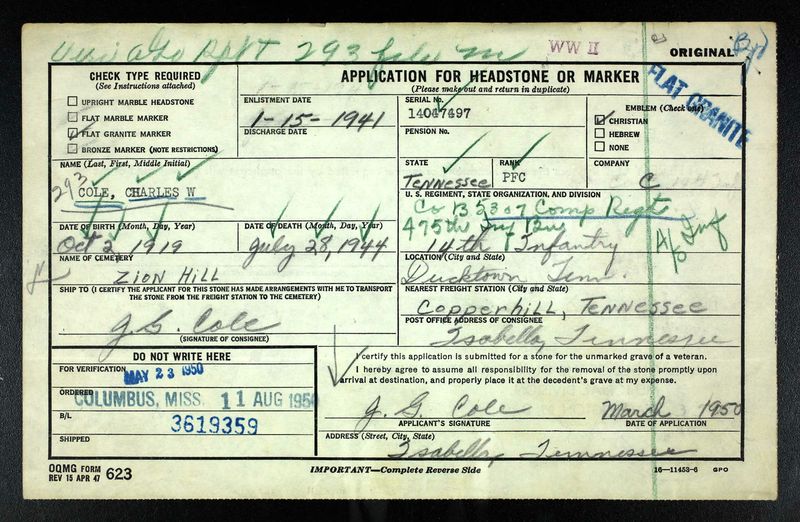 293
WW II
ORIGINAL
FLAT GRANITE
CHECK TYPE REQUIRED
(See Instructions attached)
UPRIGHT MARBLE HEADSTONE
FLAT MARBLE MARKER
FLAT GRANITE MARKER
BRONZE MARKER (NOTE RESTRICTIONS)
APPLICATION FOR HEADSTONE OR MARKER
(Please make out and return in duplicate)
ENLISTMENT DATE
1-15-1941
DISCHARGE DATE
SERIAL No.
14047497
PENSION No.
EMBLEM (Check one)
CHRISTIAN
HEBREW
NONE
NAME (Last, First, Middle Initial)
293
COLE, CHARLES W
STATE
Tennessee
RANK
PFC
COMPANY
C
U. S. REGIMENT, STATE ORGANIZATION, AND DIVISION
Co B 5307 Comp Regt
475th Inf
14th Infantry
DATE OF BIRTH (Month, Day, Year)
Oct 2 1919
DATE OF DEATH (Month, Day, Year)
July 28, 1944
NAME OF CEMETERY
ZION HILL
LOCATION (City and State)
Ducktown Tenn.
SHIP TO (I CERTIFY THE APPLICANT FOR THIS STONE HAS MADE ARRANGEMENTS WITH ME TO TRANSPORT
THE STONE FROM THE FREIGHT STATION TO THE CEMETERY)
J. G. Cole
(SIGNATURE OF CONSIGNEE)
NEAREST FREIGHT STATION (City and State)
Copperhill, Tennessee
POST OFFICE ADDRESS OF CONSIGNEE
Isabella, Tennessee
DO NOT WRITE HERE
FOR VERIFICATION
MAY 23 1950
ORDERED
COLUMBUS, MISS. 11 AUG 1950
B/L
3619359
SHIPPED
I certify this application is submitted for a stone for the unmarked grave of a veteran.
I hereby agree to assume all responsibility for the removal of the stone promptly upon
arrival at destination, and properly place it at the decedent's grave at my expense.
J. G. Cole
March 1950
APPLICANT'S SIGNATURE
DATE OF APPLICATION
ADDRESS (Street, City, State)
Isabella, Tennessee
OQMG FORM
REV 15 APR 47 623
IMPORTANT—Complete Reverse Side
16—11453-6 GPO